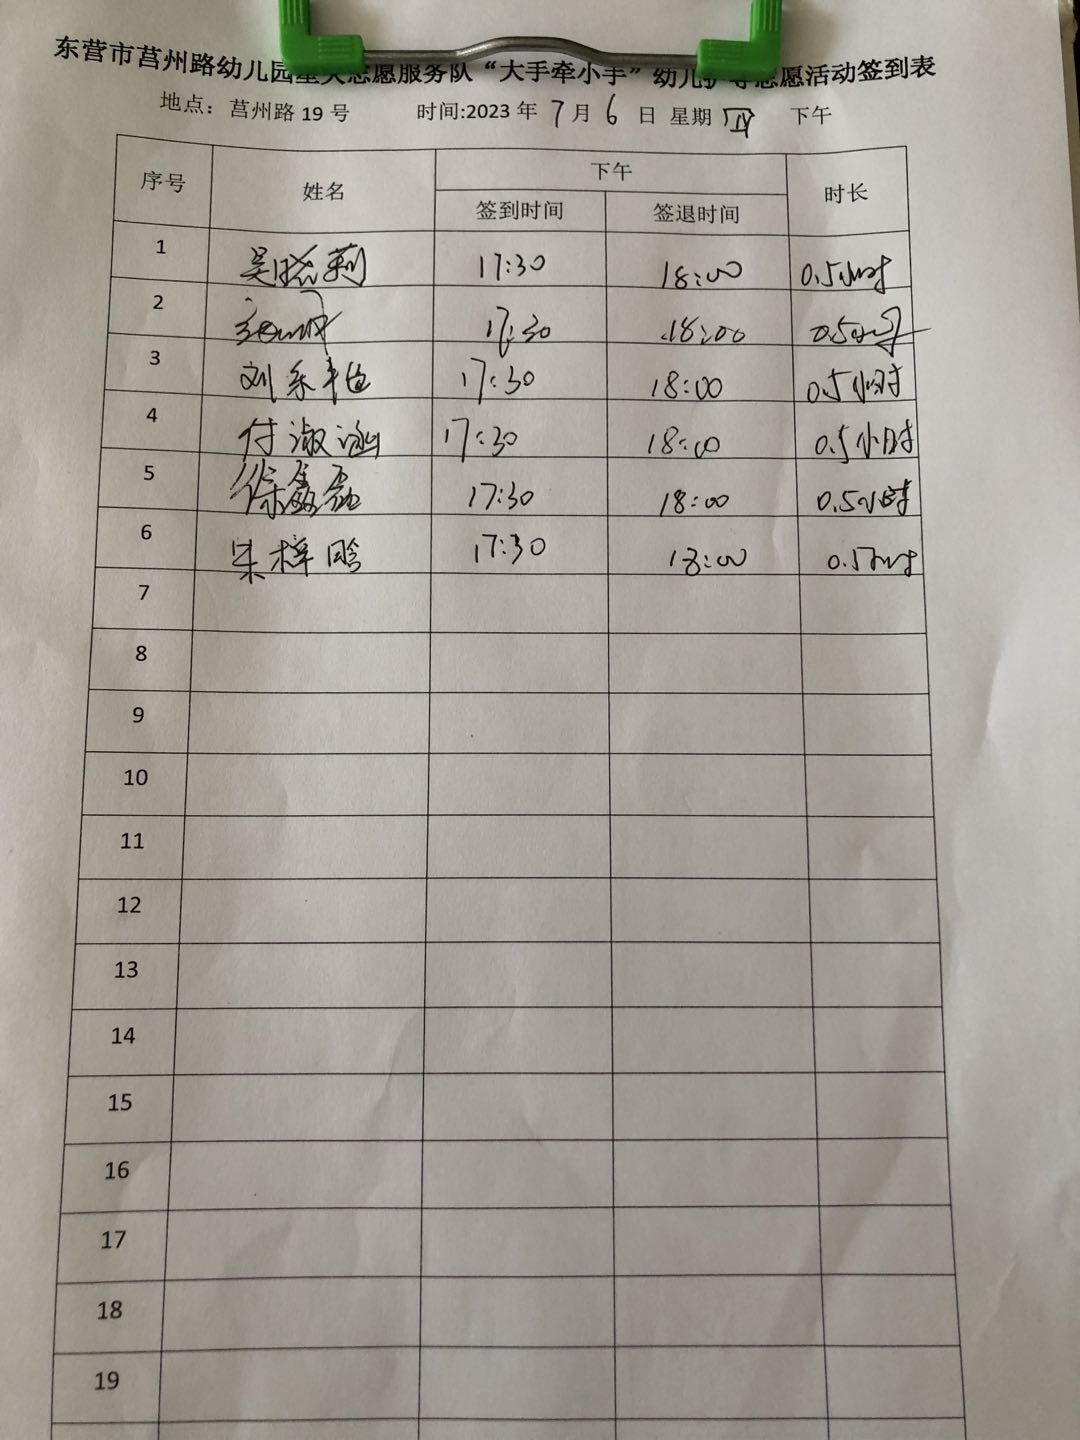 东营市莒州路幼儿园 志愿服务队“大手牵小手”幼儿护导志愿活动签到表
地点：莒州路 19 号 时间:2023 年 7 月 6 日 星期 四 下午
序号 姓名 下午 时长
签到时间 签退时间
1 吴晓莉 17:30 18:00 0.5小时
2 17:30 18:00 0.5小时
3 刘 17:30 18:00 0.5小时
4 付淑涵 17:30 18:00 0.5小时
5 徐鑫磊 17:30 18:00 0.5小时
6 朱梓晗 17:30 18:00 0.5小时
7
8
9
10
11
12
13
14
15
16
17
18
19